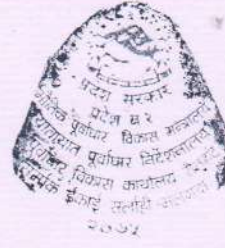 प्रदेश सरकार
प्रदेश नं २
भौतिक पूर्वाधार विकास मन्त्रालय
यातायात पूर्वाधार निर्देशनालय
पूर्वाधार विकास कार्यालय
सम्पर्क ईकाई सर्लाही
२०७५